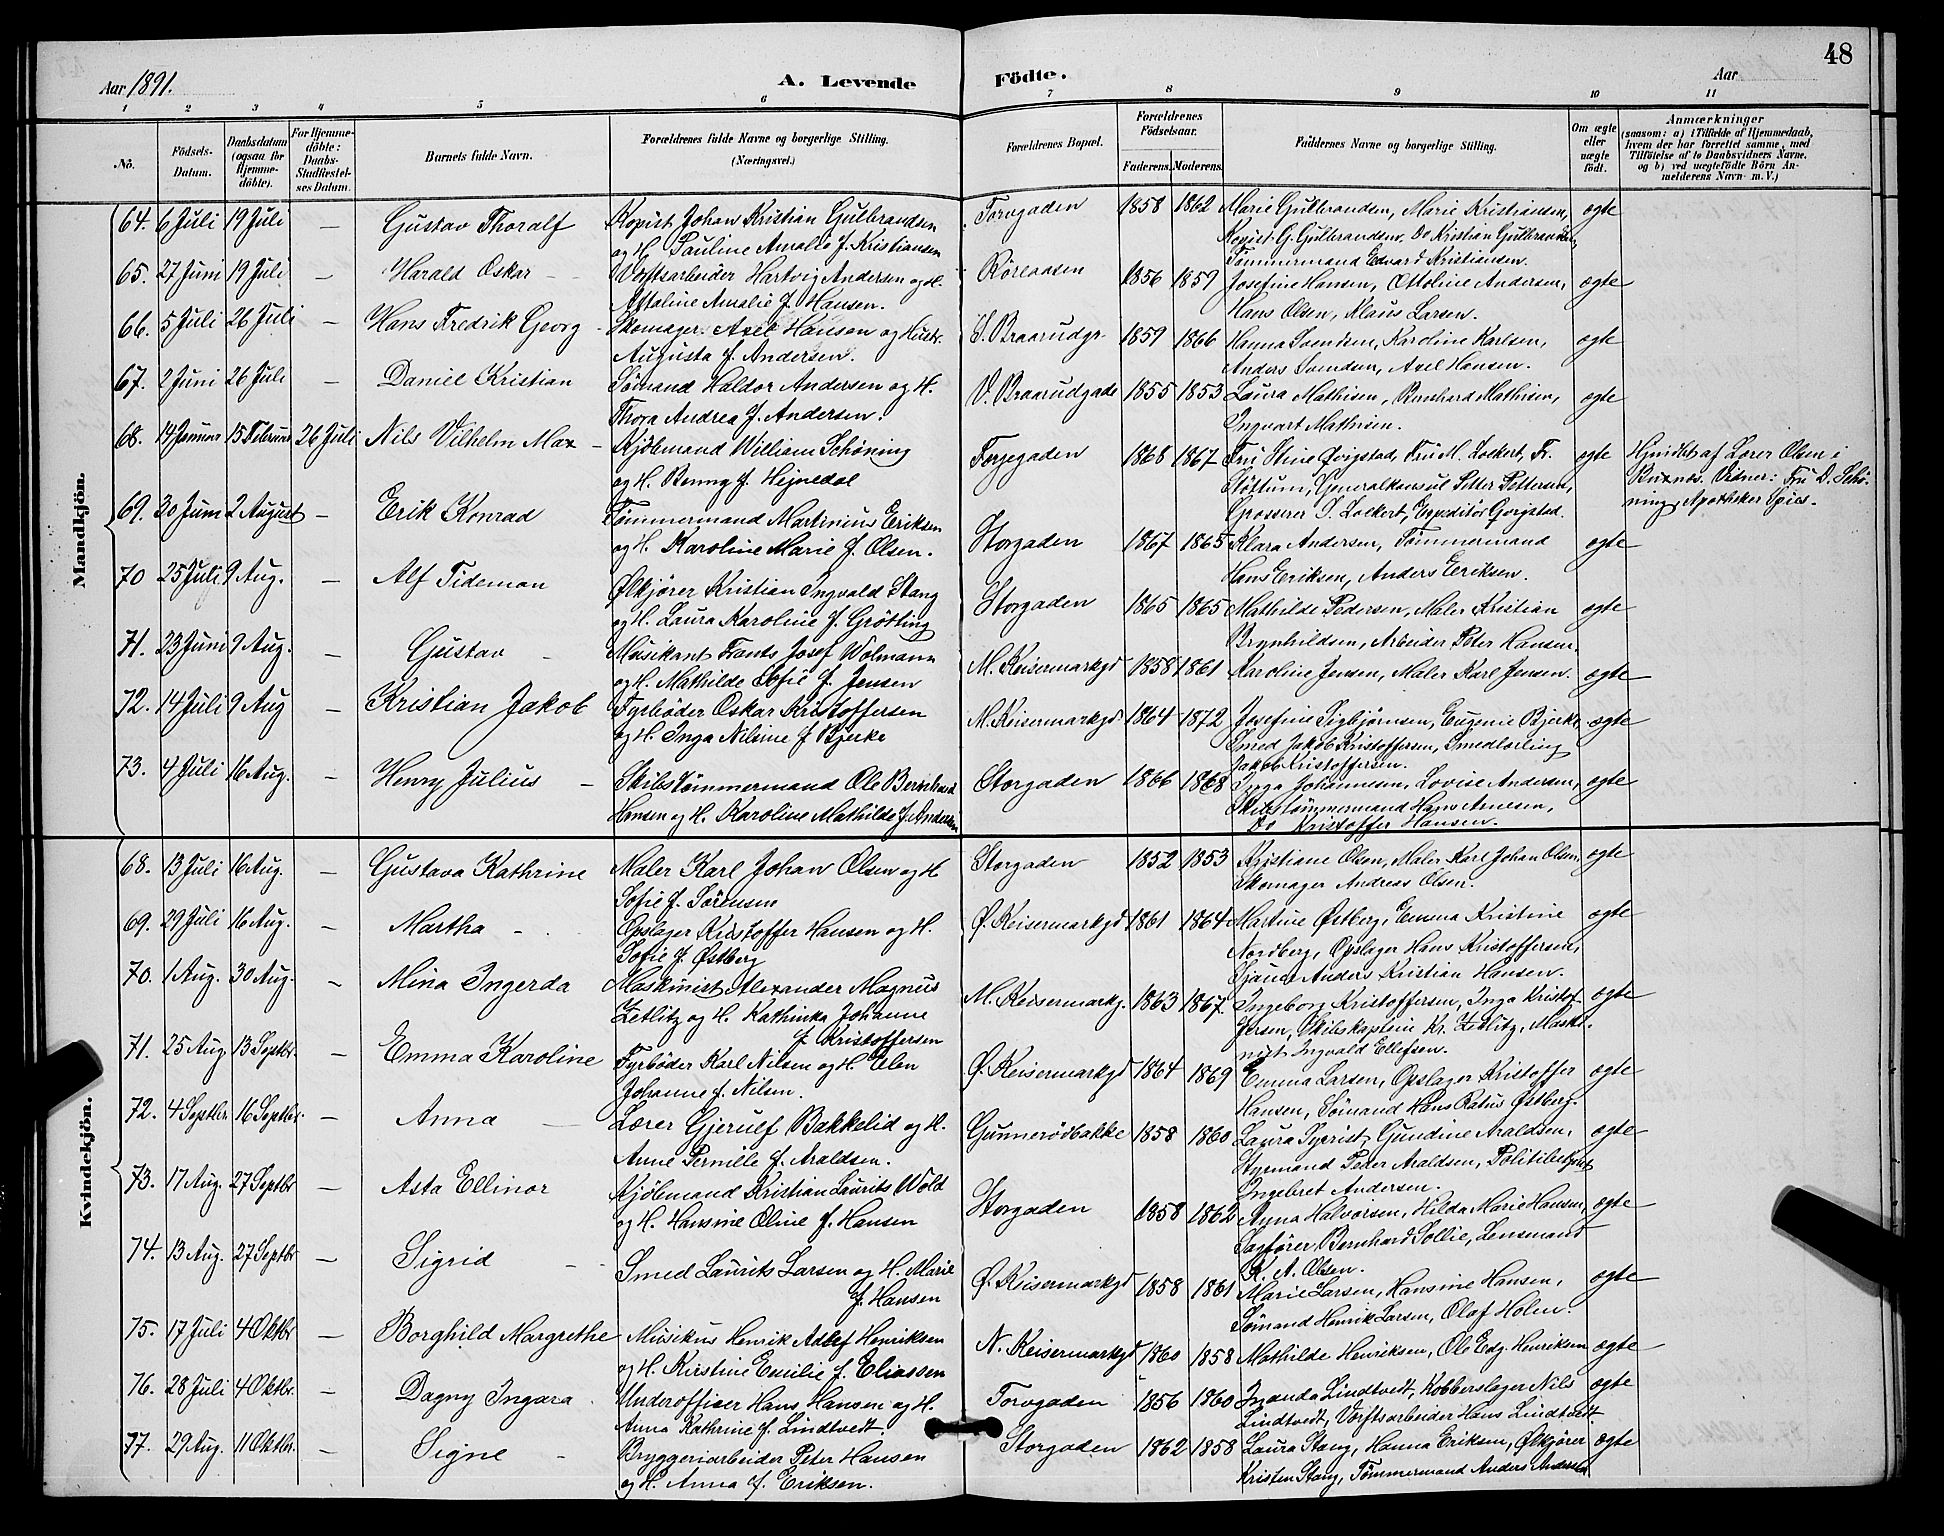 48
Aar 1891.
A. Levende Födte.
Aar
1 2 3 4 5 6 7 8 9 10 11
No.
Födsels-Datum.
Daabsdatum (ogsaa for Hjemme-döbte).
For Hjemme-döbte: Daabs-Stadfæstel-ses Datum.
Barnets fulde Navn.
Forældrenes fulde Navne og borgerlige Stilling. (Næringsvei.)
Forældrenes Bopæl.
Forældrenes Födselsaar.
Faderens. Moderens.
Faddernes Navne og borgerlige Stilling.
Om ægte eller uægte födt.
Anmærkninger
(saasom: a) i Tilfælde af Hjemmedaab, hvem der har forrettet samme, med Tilföielse af to Daabsvidners Navne, og b) ved uægtefödte Börn Anmelderens Navn m. V.)
Mandkjön.
64. 6 Juli 19 Juli — Gustav Thoralf Kopist Johan Kristian Gulbrandsen Torvgaden 1858 1862 Marie Gulbrandsen, Marie Kristiansen, ægte
og H. Pauline Amalie f. Kristiansen Kopist G. Gulbrandsen, Do Kristian Gulbrandsen,
Tömmermand Edvard Kristiansen.
65. 27 Juni 19 Juli — Harald Oskar Værftsarbeider Hartvig Andersen og H. Rörevasen 1856 1859 Josefine Hansen, Ottoline Andersen, ægte
Ottoline Amalie f. Hansen. Hans Olsen, Klaus Larsen.
66. 5 Juli 26 Juli — Hans Fredrik Georg Skomager Axel Hansen og Hustr. S. Braarudgr. 1859 1866 Hanna Svendsen, Karoline Karlsen, ægte
Augusta f. Andersen. Anders Svendsen, Axel Hansen.
67. 2 Juni 26 Juli — Daniel Kristian Sömand Haldor Andersen og H. V. Braarudgade 1855 1853 Laura Mathisen, Bernhard Mathisen, ægte
Thora Andrea f. Andersen. Ingvart Mathisen.
68. 14 Januar 15 Februar 26 Juli Nils Vilhelm Max Kjöbmand William Schöning Færgegaden 1868 1867 Fru Stine Qvigstad, Fru M. Lockert, Fr. ægte Hjmdbt af Lærer Olsen i
og H. Benny f. Hejnedal Stöttum, Generalkonsul Petter Pettersen, Buxnes. Vidner: Fru D. Schö-
Grosserer S. Lockert, Expeditör Gorgstad. ning, Apotheker Spies.
69. 30 Juni 2 August — Erik Konrad Tömmermand Martinius Eriksen Storgaden 1867 1865 Klara Andersen, Tömmermand ægte
og H. Karoline Marie f. Olsen. Hans Eriksen, Anders Eriksen.
70 25 Juli 9 Aug. — Alf Tideman Ølkjörer Kristian Ingvald Stang Storgaden 1865 1865 Mathilde Pedersen, Maler Kristian ægte
og H. Laura Karoline f. Grötting Brynhildsen, Arbeider Peter Hansen.
71. 23 Juni 9 Aug. — Gustav Musikant Frants Josef Wolmann M. Keisermarkgd 1858 1861 Karoline Jensen, Maler Karl Jensen. ægte
og H. Mathilde Sofie f. Jensen
72. 14 Juli 9 Aug — Kristian Jakob Fyrböder Oskar Kristoffersen M. Keisermarkgd 1864 1872 Josefine Sigbjörnsen, Eugenie Bjerke, ægte
og H. Inga Nilsine f Bjerke Smed Jakob Kristoffersen, Smedlærling
Jakob Kristoffersen.
73. 4 Juli 16 Aug. — Henry Julius Skibstömmermand Ole Bernhard Storgaden 1866 1868 Inga Johannesen, Lovise Andersen, ægte
Hansen og H. Karoline Mathilde f Andersen Skibstömmermand Hans Arnesen,
Do Kristoffer Hansen.
Kvindekjön.
68. 13 Juli 16 Aug. — Gustava Kathrine Maler Karl Johan Olsen og H Storgaden 1852 1853 Kristiane Olsen, Maler Karl Johan Olsen, ægte
Sofie f. Sörensen Skomager Andreas Olsen.
69. 29 Juli 16 Aug. — Martha Opslager Kristoffer Hansen og H. Ø. Keisermarkgd 1861 1864 Martine Østberg, Emma Kristine ægte
Sofie f. Østberg Nordberg, Opslager Hans Kristoffersen,
Sjauer Anders Kristian Hansen.
70. 1 Aug. 30 Aug. — Mina Ingerda Maskinist Alexander Magnus M. Keisermarkg. 1863 1867 Ingeborg Kristoffersen, Inga Kristof- ægte
Zetlitz og H. Kathinka Johanne fersen, Skibskaptein Kr. Zetlitz, Maski-
f Kristoffersen nist Ingvald Ellefsen.
71. 25 Aug. 13 Septbr. — Emma Karoline Fyrböder Karl Nilsen og H Elen Ø. Keisermarkgd 1864 1869 Emma Larsen, Opslager Kristoffer ægte
Johanne f. Nilsen. Hansen, Sömand Hans Ratus Østberg.
72. 4 Septbr. 16 Septbr. — Anna Lærer Gjerulf Bakkelid og H. Gunnerödbakke 1858 1860 Laura Syvrist, Gundine Araldsen, ægte
Anne Pernille f. Araldsen. Styrmand Peder Araldsen, Politibetjent
Ingebret Andersen.
73. 17 Aug. 27 Septbr — Asta Ellinor Kjöbmand Kristian Laurits Wold Storgaden 1858 1862 Anna Halvorsen, Hilda Marie Hansen, ægte
og H. Hansine Oline f. Hansen Sagförer Bernhard Sollie, Lensmand
K. A. Olsen.
74. 13 Aug. 27 Septbr — Sigrid Smed Laurits Larsen og H. Marie Ø. Keisermarkgd 1858 1861 Marie Larsen, Hansine Hansen, ægte
f. Hansen Sömand Henrik Larsen, Olaf Holen.
75. 17 Juli 4 Oktbr — Borghild Margrethe Musikus Henrik Adlef Henriksen N. Keisermarkgd 1860 1858 Mathilde Henriksen, Ole Edg. Henriksen ægte
og H. Kirstine Emilie f. Eliassen
76. 28 Juli 4 Oktbr. — Dagny Ingara Underofficer Hans Hansen og H. Torvgaden 1856 1860 Inanda Lindtvedt, Kobberslager Nils ægte
Anna Kathrine f. Lindtvedt. Lindtvedt, Værftsarbeider Hans Lindtvedt
77. 29 Aug. 11 Oktbr. — Signe Bryggeriarbeider Peter Hansen Storgaden 1862 1858 Laura Stang, Hanna Eriksen, Ølkjörer ægte
og H. Anna f. Eriksen. Kristen Stang, Tömmermand Anders Andersen